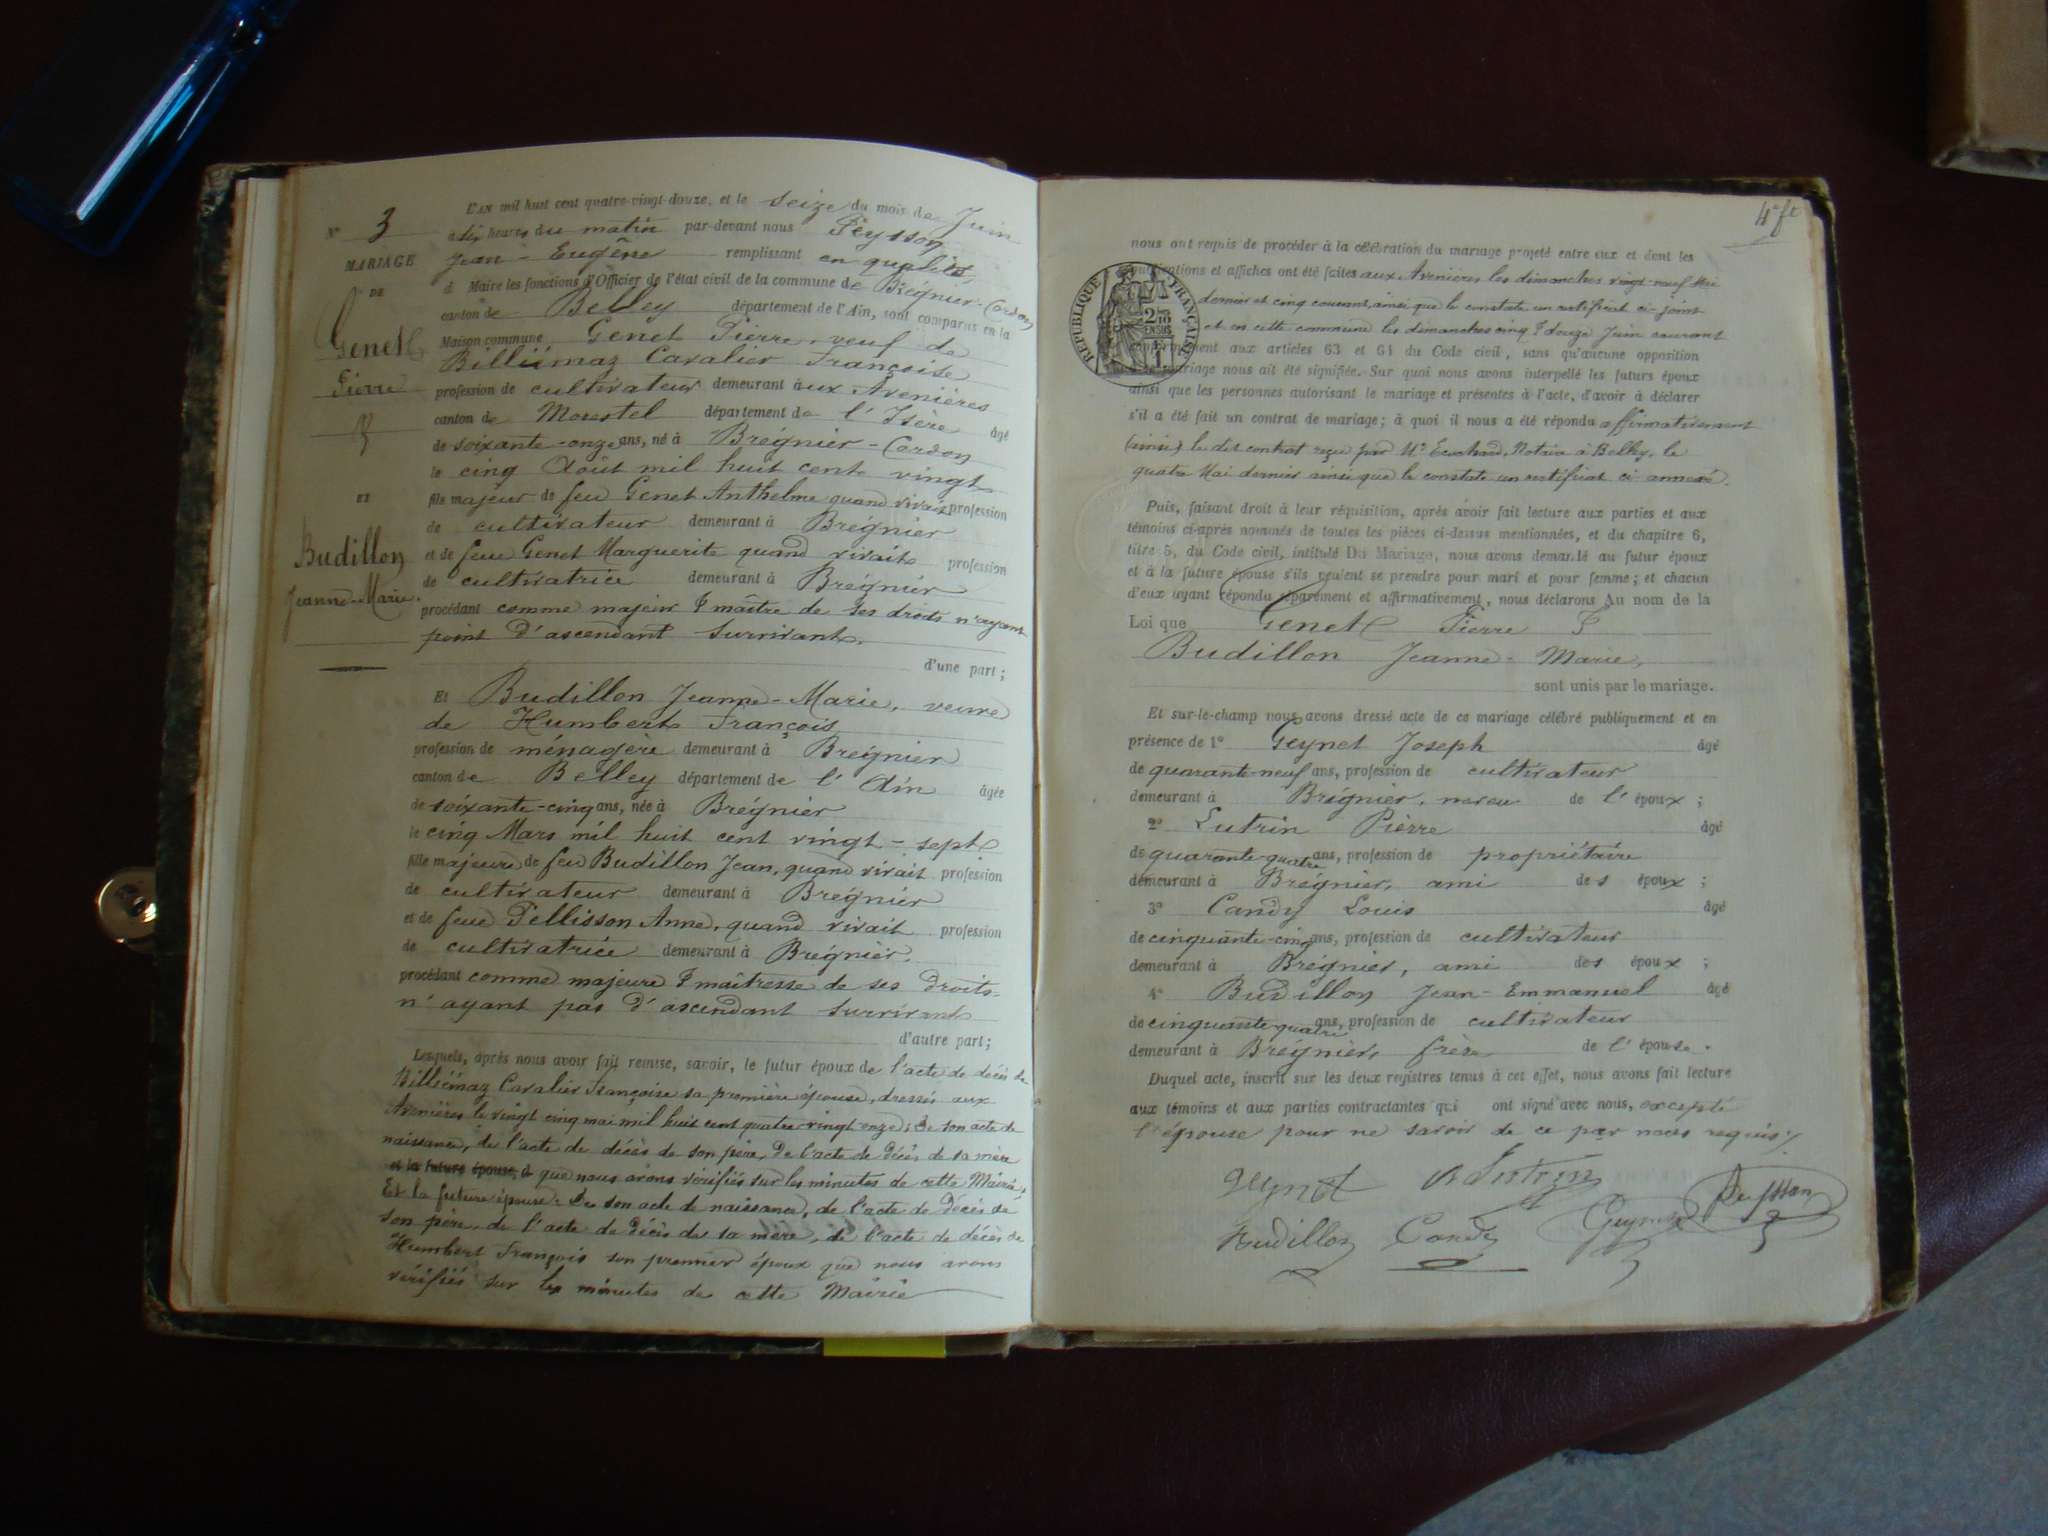 L'AN mil huit cent quatre-vingt-douze, et le seize du mois de Juin
N° 3
à dix heures du matin par-devant nous Peysson
Jean-Eugène remplissant en qualité
MARIAGE
d Maire les fonctions d'Officier de l'état civil de la commune de Brégnier-Cordon
DE
canton de Belley département de l'Ain, sont comparus en la
Genet
Maison commune Genet Pierre, veuf de
Billiémaz Cavalier Françoise
Pierre
profession de cultivateur demeurant aux Avenières
canton de Morestel département de l'Isère âgé
de soixante-onze ans, né à Brégnier-Cordon
le cinq Août mil huit cent vingt
ET
fils majeur de feu Genet Anthelme quand vivait profession
de cultivateur demeurant à Brégnier
Budillon
et de feue Genet Marguerite quand vivait profession
Jeanne-Marie.
de cultivatrice demeurant à Brégnier
procédant comme majeur & maître de ses droits n'ayant
point d'ascendant survivant.
d'une part ;
Et Budillon Jeanne-Marie, veuve
de Humbert François
profession de ménagère demeurant à Brégnier
canton de Belley département de l'Ain âgée
de soixante-cinq ans, née à Brégnier
le cinq Mars mil huit cent vingt-sept
fille majeure de feu Budillon Jean, quand vivait profession
de cultivateur demeurant à Brégnier
et de feue Pellisson Anne, quand vivait profession
de cultivatrice demeurant à Brégnier.
procédant comme majeure & maîtresse de ses droits
n'ayant pas d'ascendant survivant
d'autre part ;
Lesquels, après nous avoir fait remise, savoir, le futur époux de l'acte de décès de
Billiémaz Cavalier Françoise sa première épouse, dressés aux
Avenières le vingt cinq mai mil huit cent quatre-vingt onze ; de son acte de
naissance, de l'acte de décès de son père, de l'acte de décès de sa mère
et la future épouse, d que nous avons vérifiés sur les minutes de cette Mairie.
Et la future épouse : De son acte de naissance, de l'acte de décès de
son père, de l'acte de décès de sa mère, de l'acte de décès de
Humbert François son premier époux que nous avons
vérifiés sur les minutes de cette Mairie
4e ft
nous ont requis de procéder à la célébration du mariage projeté entre eux et dont les
publications et affiches ont été faites aux Avenières les dimanches vingt-neuf Mai
dernier et cinq courant, ainsi que le constate un certificat ci-joint
et en cette commune les dimanches cinq & douze Juin courant
RÉPUBLIQUE FRANÇAISE
2/10 EN SUS
1
conformément aux articles 63 et 64 du Code civil, sans qu'aucune opposition
mariage nous ait été signifiée. Sur quoi nous avons interpellé les futurs époux
ainsi que les personnes autorisant le mariage et présentes à l'acte, d'avoir à déclarer
s'il a été fait un contrat de mariage ; à quoi il nous a été répondu affirmativement
le dit contrat reçu par Me Notaire à Belley, le
quatre Mai dernier ainsi que le constate un certificat ci annexé.
Puis, faisant droit à leur réquisition, après avoir fait lecture aux parties et aux
témoins ci-après nommés de toutes les pièces ci-dessus mentionnées, et du chapitre 6,
titre 5, du Code civil, intitulé Du Mariage, nous avons demandé au futur époux
et à la future épouse s'ils veulent se prendre pour mari et pour femme ; et chacun
d'eux ayant répondu séparément et affirmativement, nous déclarons Au nom de la
Loi que Genet Pierre &
Budillon Jeanne-Marie,
sont unis par le mariage.
Et sur-le-champ nous avons dressé acte de ce mariage célébré publiquement et en
présence de 1° Geynet Joseph âgé
de quarante-neuf ans, profession de cultivateur
demeurant à Brégnier, neveu de l'époux ;
2° Lutrin Pierre âgé
de quarante-quatre ans, profession de propriétaire
demeurant à Brégnier, ami des époux ;
3° Candy Louis âgé
de cinquante-cinq ans, profession de cultivateur
demeurant à Brégnier, ami des époux ;
4° Budillon Jean-Emmanuel âgé
de cinquante-quatre ans, profession de cultivateur
demeurant à Brégnier, frère de l'épouse.
Duquel acte, inscrit sur les deux registres tenus à cet effet, nous avons fait lecture
aux témoins et aux parties contractantes qui ont signé avec nous, excepté
l'épouse pour ne savoir de ce par nous requis./.
Geynet Lutrin Peysson
Budillon Candy Geynet